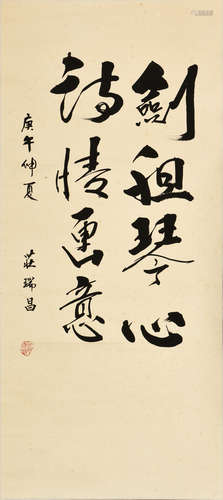 劍胆琴心
詩情畫意
庚午仲夏
莊瑞昌